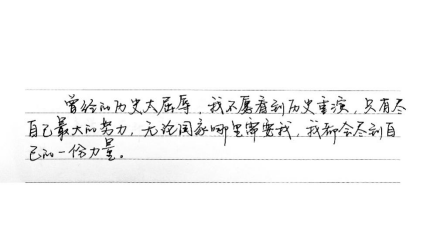 曾经的历史太屈辱，我不愿看到历史重演，只有尽
自己最大的努力，无论国家哪里需要我，我都会尽到自
己的一份力量。